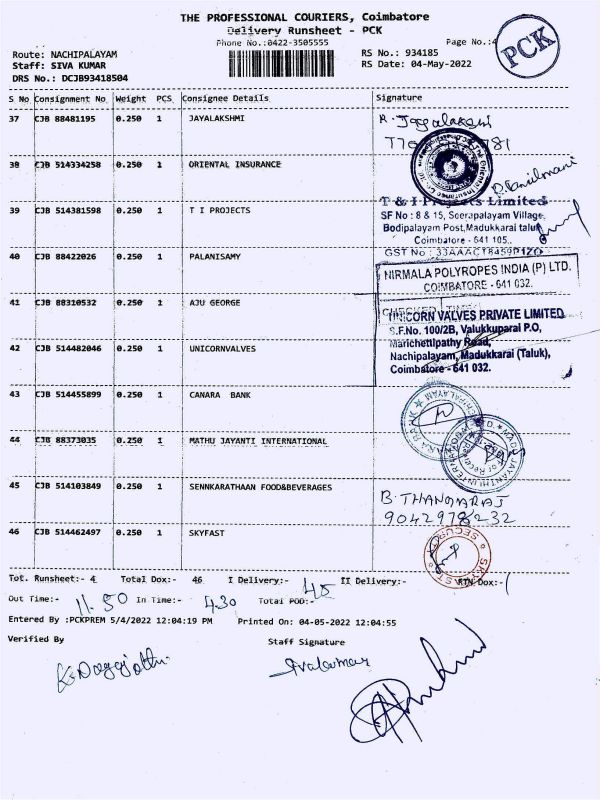 THE PROFESSIONAL COURIERS, Coimbatore
Delivery Runsheet - PCK
Phone No.:0422-3505555
Page No.:4
PCK
Route: NACHIPALAYAM
Staff: SIVA KUMAR
DRS No.: DCJB93418504
RS No.: 934185
RS Date: 04-May-2022
S No Consignment No Weight PCS Consignee Details Signature
37 CJB 88481195 0.250 1 JAYALAKSHMI
38 CJB 514334258 0.250 1 ORIENTAL INSURANCE
39 CJB 514381598 0.250 1 T I PROJECTS
T & I Projects Limited
SF No : 8 & 15, Seerapalayam Village,
Bodipalayam Post, Madukkarai taluk
Coimbatore - 641 105.
40 CJB 88422026 0.250 1 PALANISAMY
GST No : 33AAACT8459P1ZO
NIRMALA POLYROPES INDIA (P) LTD.
COIMBATORE - 641 032.
41 CJB 88310532 0.250 1 AJU GEORGE
UNICORN VALVES PRIVATE LIMITED
S.F.No. 100/2B, Valukkuparai P.O,
Marichettipathy Road,
Nachipalayam, Madukkarai (Taluk),
Coimbatore - 641 032.
42 CJB 514482046 0.250 1 UNICORNVALVES
43 CJB 514455899 0.250 1 CANARA BANK
44 CJB 88373035 0.250 1 MATHU JAYANTI INTERNATIONAL
45 CJB 514103849 0.250 1 SENNKARATHAAN FOOD&BEVERAGES
B. THANGARAJ
9042978232
46 CJB 514462497 0.250 1 SKYFAST
Tot. Runsheet:- 4 Total Dox:- 46 I Delivery:- 45 II Delivery:- RTN Dox:- 1
Out Time:- 11.50 In Time:- 4.30 Total POD:-
Entered By :PCKPREM 5/4/2022 12:04:19 PM Printed On: 04-05-2022 12:04:55
Verified By Staff Signature